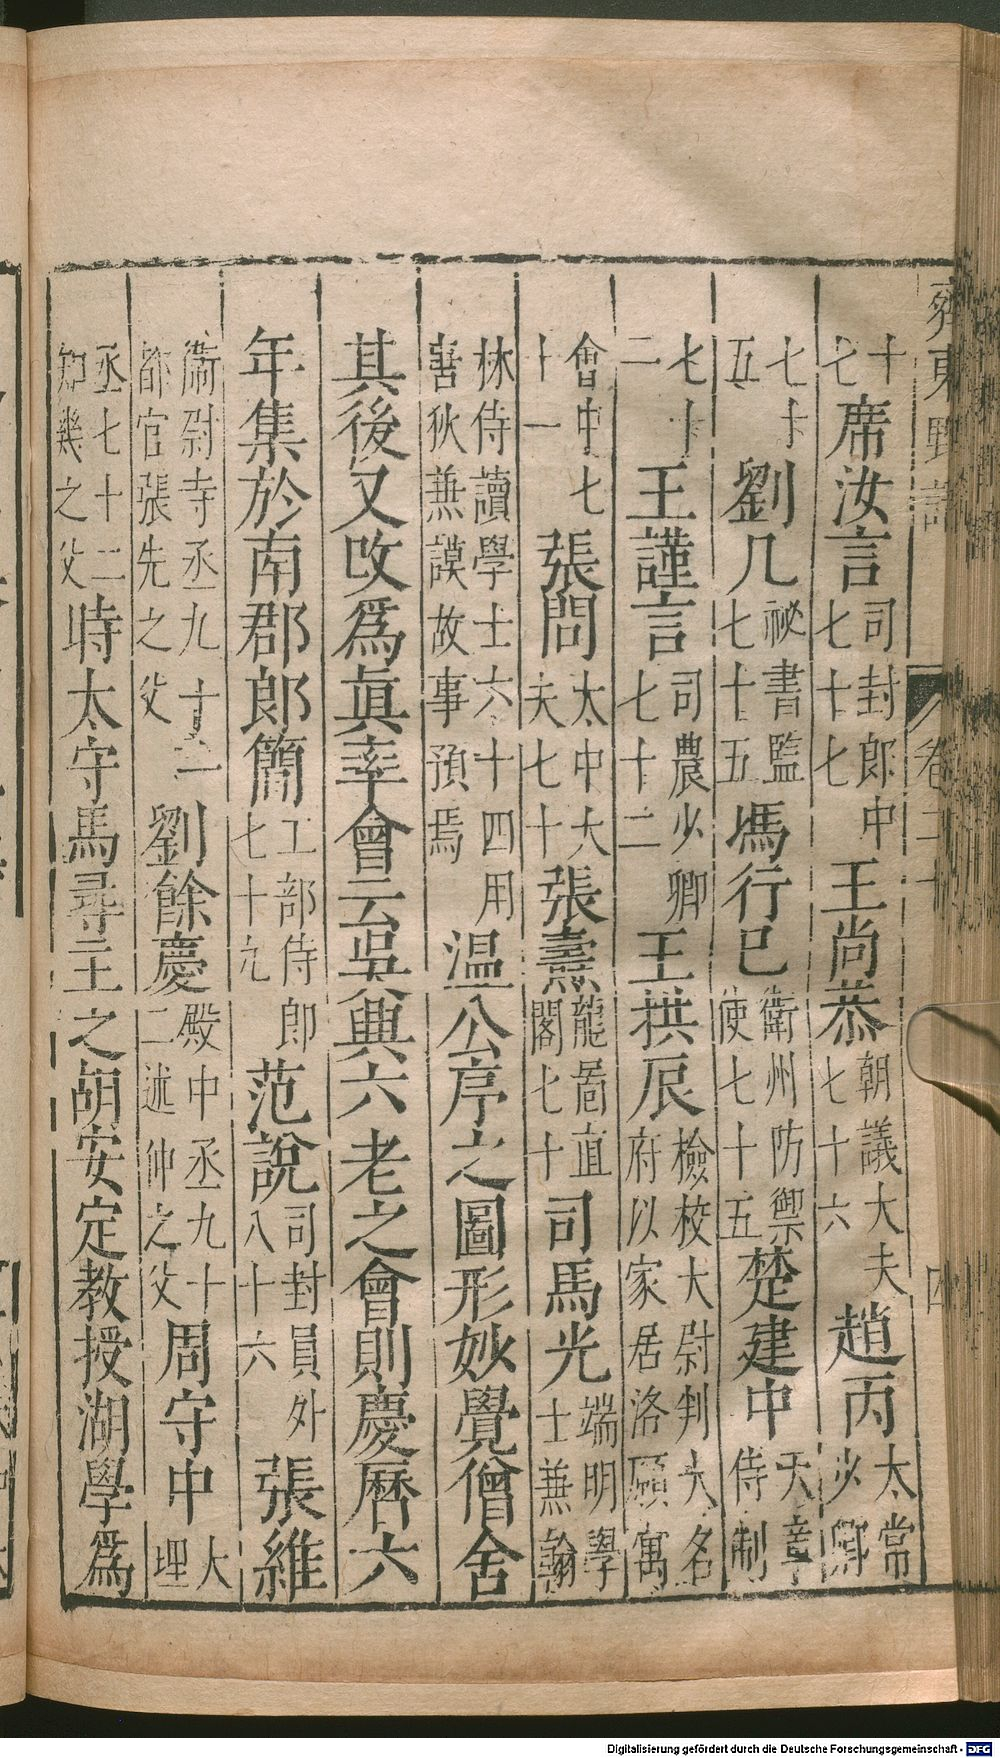 齊東野語 卷二十 四
十七席汝言司封郎中七十七王尚恭朝議大夫七十六趙丙太常少卿
七十五劉几祕書監七十五馮行已衛州防禦使七十五楚建中天章待制
七十二王謹言司農少卿七十二王拱辰檢校大尉判大名府以家居洛願寓
會中七十一張問太中大夫七十張燾龍啚直閣七十司馬光端明學士兼翰
林侍讀學士六十四用善狄兼謨故事預焉温公序之圖形妙覺僧舍
其後又改爲眞率會云吳興六老之會則慶曆六
年集於南郡郎簡工部侍郎七十九范說司封員外八十六張維
衞尉寺丞九十二都官張先之父劉餘慶殿中丞九十二述仲之父周守中大理
丞七十二知幾之父時太守馬尋主之胡安定教授湖學爲
Digitalisierung gefördert durch die Deutsche Forschungsgemeinschaft - DFG